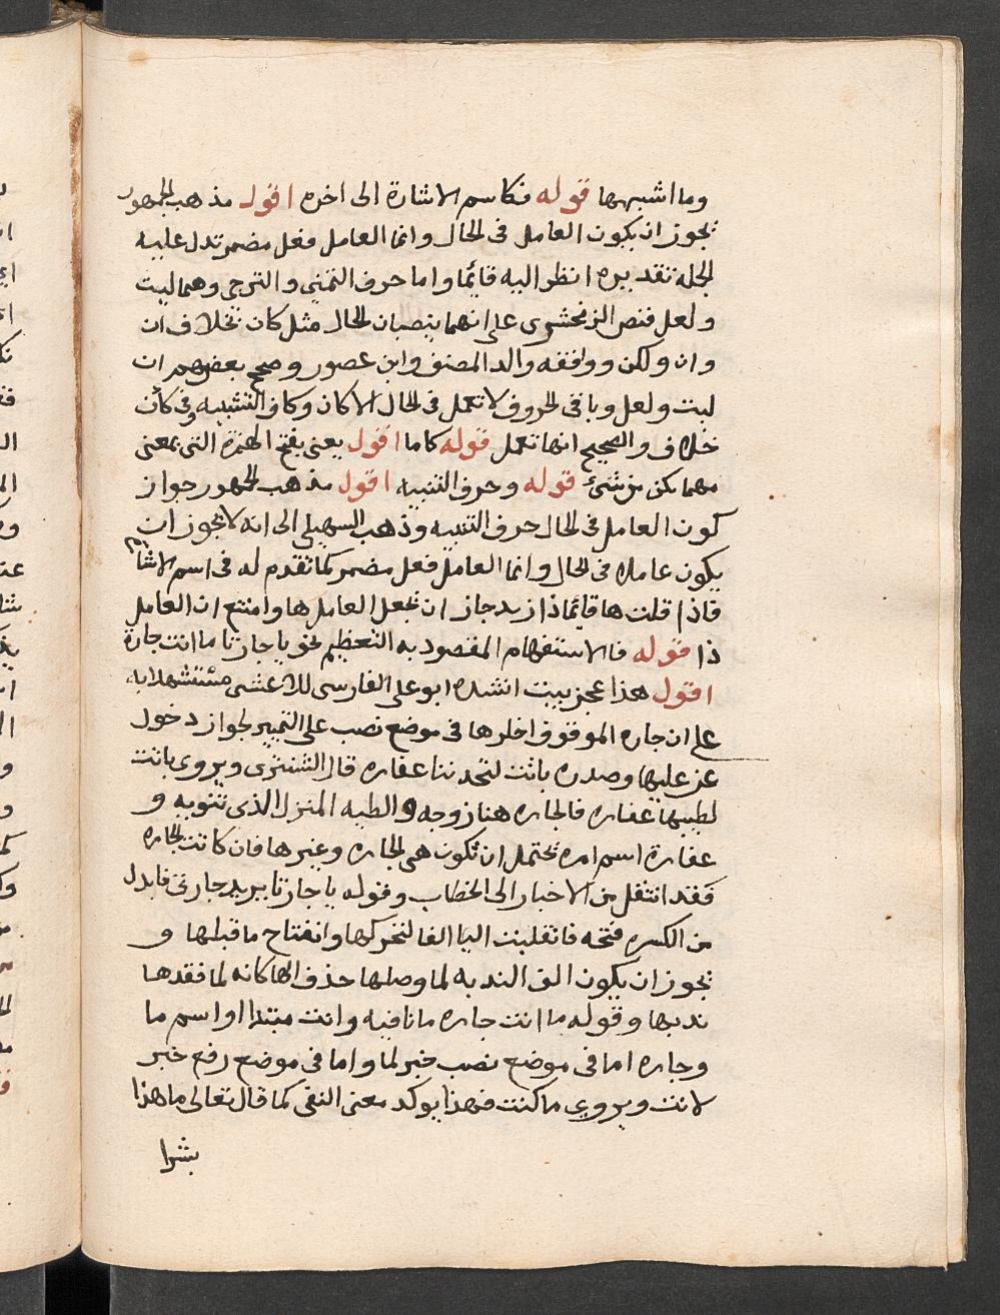 وما اشبهها قوله فكاسم الاشارة الى اخره اقول مذهب الجمهور
تجوز ان يكون العامل فى الحال وانما العامل فعل مضمر تدل عليه
الجملة تقديره انظر اليه قايمًا واما حرف التمنى والترجى وهما ليت
ولعل فنص الزمخشرى على انهما ينصبان الحال مثل كان بخلاف ان
وان ولكن ووافقه والد المصنف وابن عصفور وصحح بعضهم ان
ليت ولعل وباقى الحروف لا تعمل فى الحال الا كان وكاف التشبيه وفى كان
خلاف والصحيح انها تعمل قوله كاما اقول يعنى بفتح الهمزة التى بمعنى
مهما يكن من شئ قوله وحرف التنبيه اقول مذهب الجمهور جواز
كون العامل فى الحال حرف التنبيه وذهب السهيلى الى انه لا يجوز ان
يكون عامله فى الحال وانما العامل فعل مضمر كما تقدم له فى اسم الاشارة
فاذا قلت ها قائما ذا زيد جاز ان تجعل العامل ها وامتنع ان العامل
ذا قوله فالاستفهام المقصود به التعظيم نحو يا جارتا ما انت جاره
اقول هذا عجز بيت انشده ابو على الفارسى للاعشى مستشهدا به
على ان جاره الموقوف اخرها فى موضع نصب على التمييز لجواز دخول
من عليها وصدره بانت لتحزننا عفاره قال الشنتمرى ويروى بانت
لطيتها عفاره فالجاره هنا زوجه والطيه المنزل الذى تنويه و
عفارة اسم امره تحتمل ان تكون هى الجاره وغيرها فان كانت الجاره
فقد انتقل من الاخبار الى الخطاب وقوله يا جارتا يريد جارتى فابدل
من الكسره فتحه فانقلبت اليا الفا لتحركها وانفتاح ما قبلها و
تجوز ان يكون الف الندبه لما وصلها حذف الها كانه لما فقدها
ندبها وقوله ما انت جاره ما نافيه وانت مبتدا او اسم ما
وجاره اما فى موضع نصب خبر لما واما فى موضع رفع خبر
لانت ويروى ما كنت فهذا يوكد معنى النفى كما قال تعالى ما هذا
بشرا